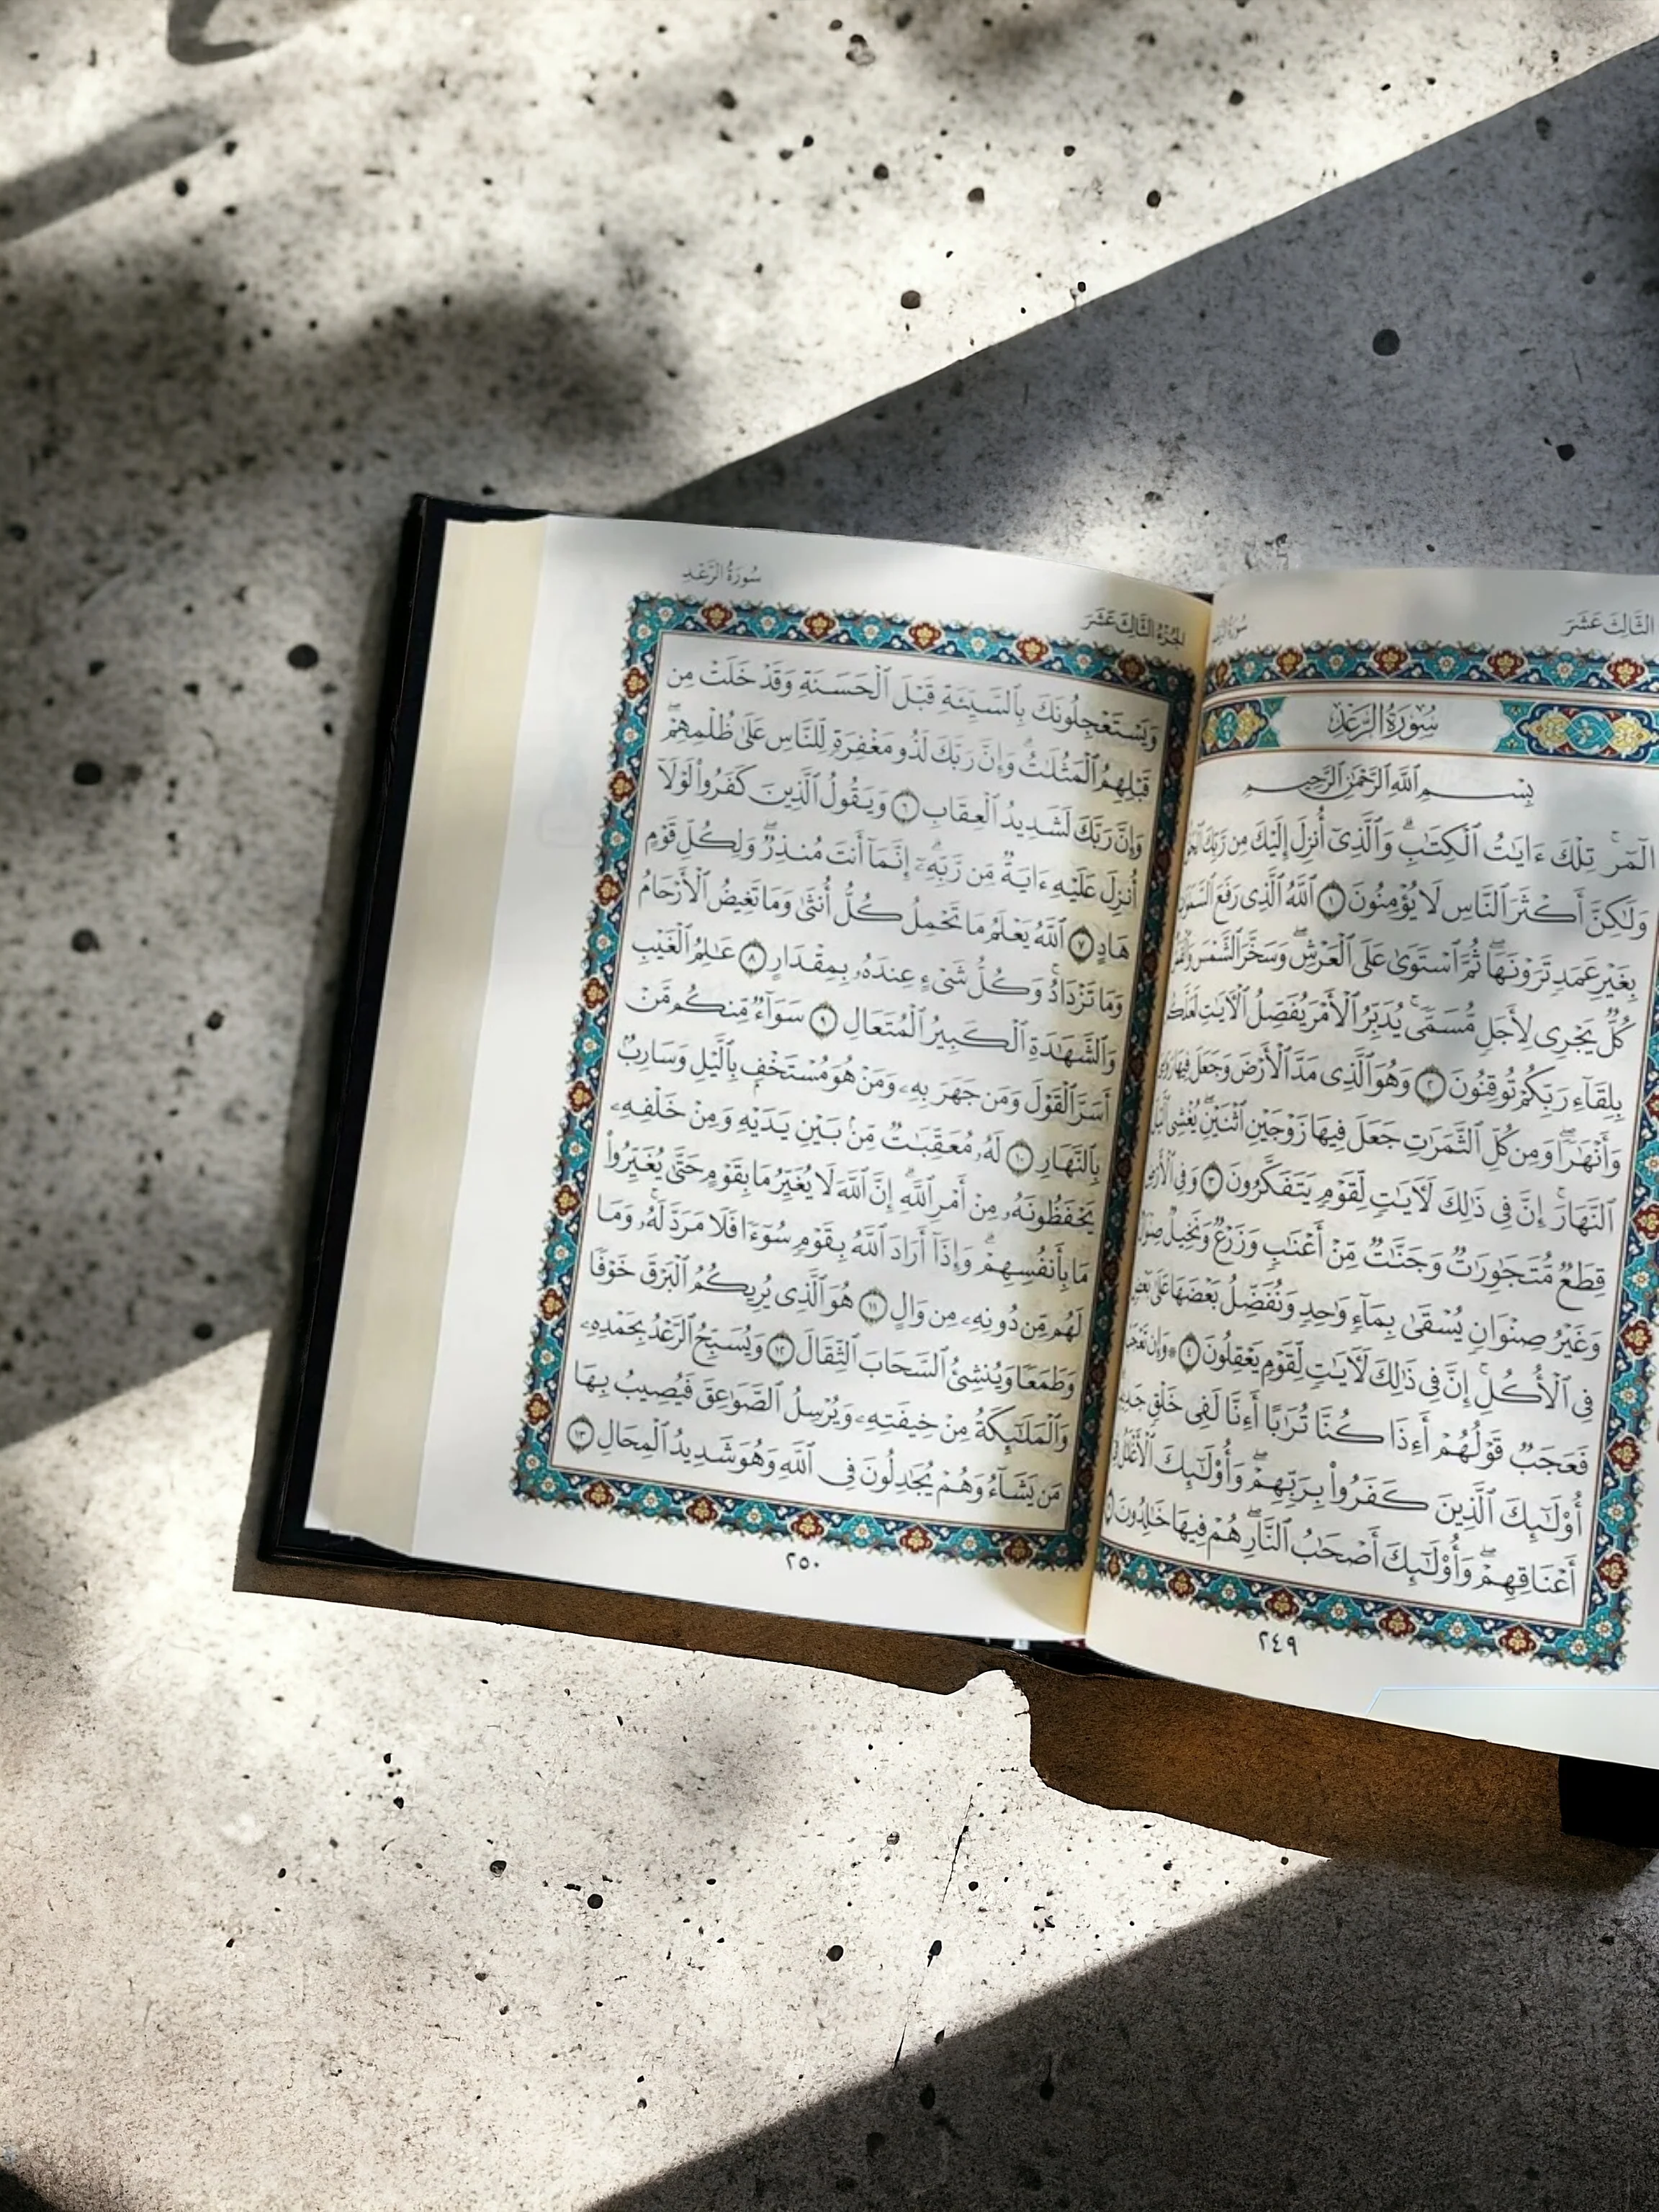 الثَّالِثَ عَشَرَ
سُورَةُ
سُورَةُ الرَّعْدِ
بِسْمِ ٱللَّهِ ٱلرَّحْمَٰنِ ٱلرَّحِيمِ
الٓمٓرۚ تِلْكَ ءَايَٰتُ ٱلْكِتَٰبِۗ وَٱلَّذِىٓ أُنزِلَ إِلَيْكَ مِن رَّبِّكَ
وَلَٰكِنَّ أَكْثَرَ ٱلنَّاسِ لَا يُؤْمِنُونَ ١ ٱللَّهُ ٱلَّذِى رَفَعَ ٱلسَّمَٰوَٰتِ
بِغَيْرِ عَمَدٍ تَرَوْنَهَاۖ ثُمَّ ٱسْتَوَىٰ عَلَى ٱلْعَرْشِۖ وَسَخَّرَ ٱلشَّمْسَ وَٱلْقَمَرَ
كُلٌّ يَجْرِى لِأَجَلٍ مُّسَمًّىۚ يُدَبِّرُ ٱلْأَمْرَ يُفَصِّلُ ٱلْءَايَٰتِ لَعَلَّكُم
بِلِقَآءِ رَبِّكُمْ تُوقِنُونَ ٢ وَهُوَ ٱلَّذِى مَدَّ ٱلْأَرْضَ وَجَعَلَ فِيهَا
وَأَنْهَٰرًاۖ وَمِن كُلِّ ٱلثَّمَرَٰتِ جَعَلَ فِيهَا زَوْجَيْنِ ٱثْنَيْنِۖ يُغْشِى ٱلَّيْلَ
ٱلنَّهَارَۚ إِنَّ فِى ذَٰلِكَ لَءَايَٰتٍ لِّقَوْمٍ يَتَفَكَّرُونَ ٣ وَفِى ٱلْأَرْضِ
قِطَعٌ مُّتَجَٰوِرَٰتٌ وَجَنَّٰتٌ مِّنْ أَعْنَٰبٍ وَزَرْعٌ وَنَخِيلٌ
وَغَيْرُ صِنْوَانٍ يُسْقَىٰ بِمَآءٍ وَٰحِدٍ وَنُفَضِّلُ بَعْضَهَا عَلَىٰ بَعْضٍ
فِى ٱلْأُكُلِۚ إِنَّ فِى ذَٰلِكَ لَءَايَٰتٍ لِّقَوْمٍ يَعْقِلُونَ ٤ ۞ وَإِن تَعْجَبْ
فَعَجَبٌ قَوْلُهُمْ أَءِذَا كُنَّا تُرَٰبًا أَءِنَّا لَفِى خَلْقٍ جَدِيدٍ
أُو۟لَٰٓئِكَ ٱلَّذِينَ كَفَرُوا۟ بِرَبِّهِمْۖ وَأُو۟لَٰٓئِكَ ٱلْأَغْلَٰلُ فِىٓ
أَعْنَاقِهِمْۖ وَأُو۟لَٰٓئِكَ أَصْحَٰبُ ٱلنَّارِۖ هُمْ فِيهَا خَٰلِدُونَ
٢٤٩
الجُزْءُ الثَّالِثَ عَشَرَ
سُورَةُ الرَّعْدِ
وَيَسْتَعْجِلُونَكَ بِٱلسَّيِّئَةِ قَبْلَ ٱلْحَسَنَةِ وَقَدْ خَلَتْ مِن
قَبْلِهِمُ ٱلْمَثُلَٰتُۗ وَإِنَّ رَبَّكَ لَذُو مَغْفِرَةٍ لِّلنَّاسِ عَلَىٰ ظُلْمِهِمْۖ
وَإِنَّ رَبَّكَ لَشَدِيدُ ٱلْعِقَابِ ٦ وَيَقُولُ ٱلَّذِينَ كَفَرُوا۟ لَوْلَآ
أُنزِلَ عَلَيْهِ ءَايَةٌ مِّن رَّبِّهِۦٓۗ إِنَّمَآ أَنتَ مُنذِرٌۖ وَلِكُلِّ قَوْمٍ
هَادٍ ٧ ٱللَّهُ يَعْلَمُ مَا تَحْمِلُ كُلُّ أُنثَىٰ وَمَا تَغِيضُ ٱلْأَرْحَامُ
وَمَا تَزْدَادُۖ وَكُلُّ شَىْءٍ عِندَهُۥ بِمِقْدَارٍ ٨ عَٰلِمُ ٱلْغَيْبِ
وَٱلشَّهَٰدَةِ ٱلْكَبِيرُ ٱلْمُتَعَالِ ٩ سَوَآءٌ مِّنكُم مَّنْ
أَسَرَّ ٱلْقَوْلَ وَمَن جَهَرَ بِهِۦ وَمَنْ هُوَ مُسْتَخْفٍۭ بِٱلَّيْلِ وَسَارِبٌۢ
بِٱلنَّهَارِ ١٠ لَهُۥ مُعَقِّبَٰتٌ مِّنۢ بَيْنِ يَدَيْهِ وَمِنْ خَلْفِهِۦ
يَحْفَظُونَهُۥ مِنْ أَمْرِ ٱللَّهِۗ إِنَّ ٱللَّهَ لَا يُغَيِّرُ مَا بِقَوْمٍ حَتَّىٰ يُغَيِّرُوا۟
مَا بِأَنفُسِهِمْۗ وَإِذَآ أَرَادَ ٱللَّهُ بِقَوْمٍ سُوٓءًا فَلَا مَرَدَّ لَهُۥۚ وَمَا
لَهُم مِّن دُونِهِۦ مِن وَالٍ ١١ هُوَ ٱلَّذِى يُرِيكُمُ ٱلْبَرْقَ خَوْفًا
وَطَمَعًا وَيُنشِئُ ٱلسَّحَابَ ٱلثِّقَالَ ١٢ وَيُسَبِّحُ ٱلرَّعْدُ بِحَمْدِهِۦ
وَٱلْمَلَٰٓئِكَةُ مِنْ خِيفَتِهِۦ وَيُرْسِلُ ٱلصَّوَٰعِقَ فَيُصِيبُ بِهَا
مَن يَشَآءُ وَهُمْ يُجَٰدِلُونَ فِى ٱللَّهِ وَهُوَ شَدِيدُ ٱلْمِحَالِ ١٣
٢٥٠